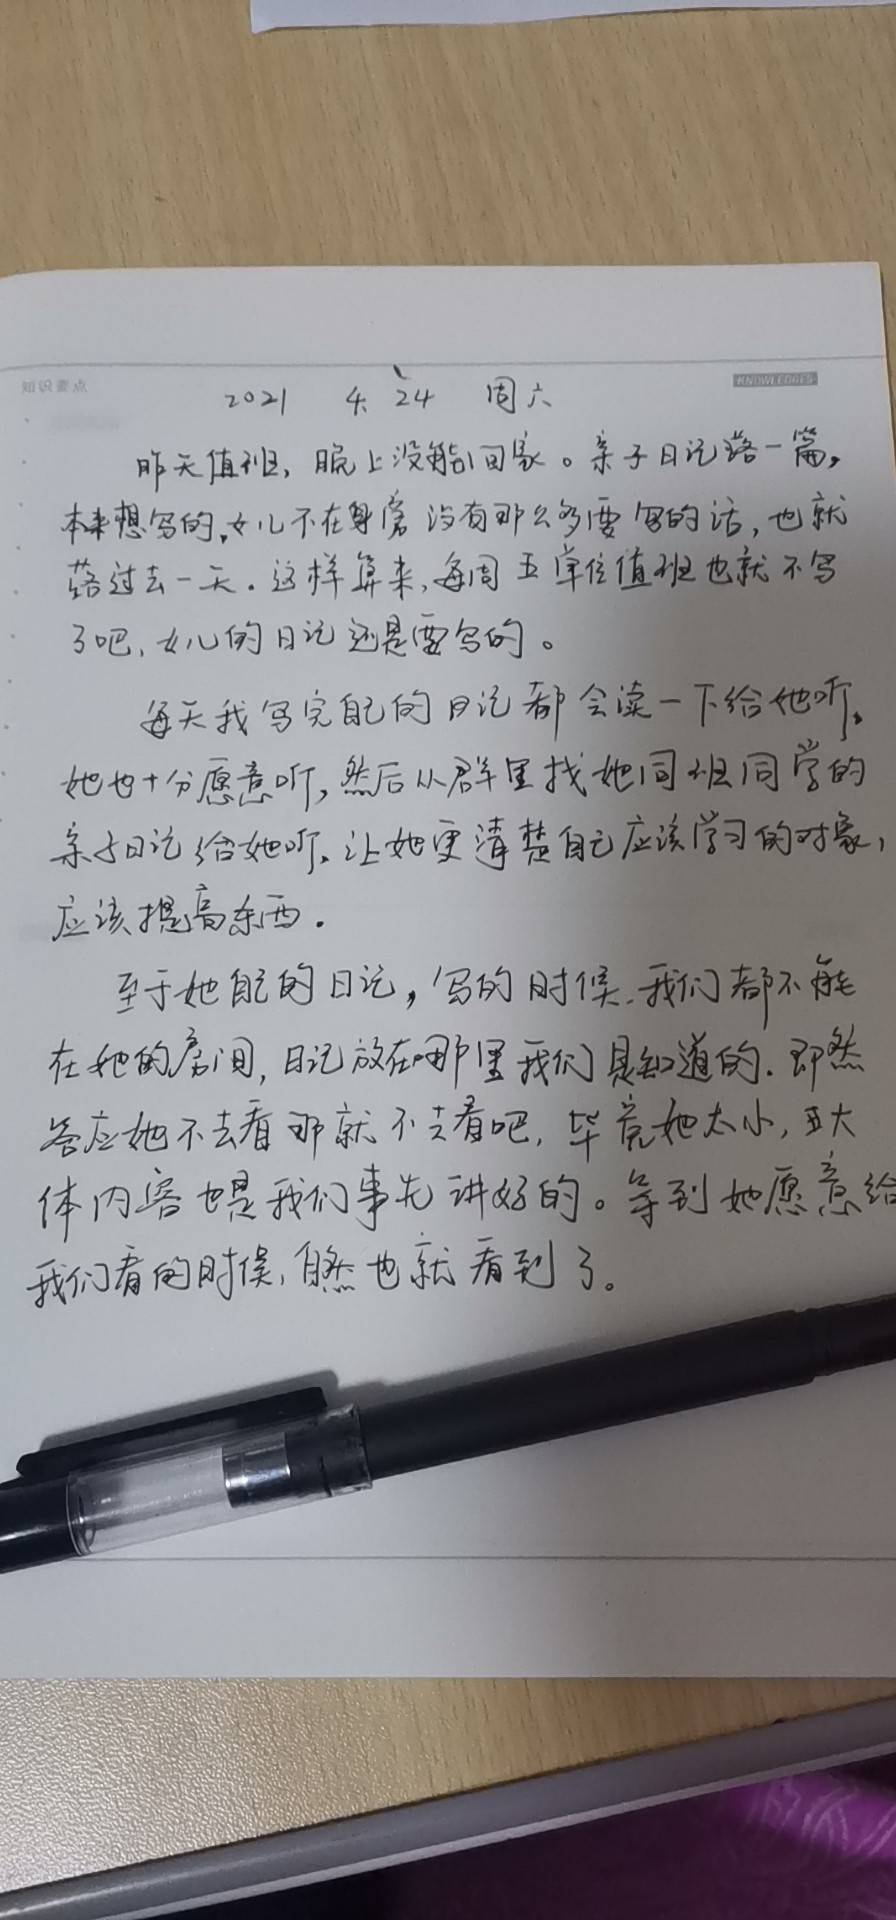 知识要点
KNOWLEDGES
2021 4、24 周六
昨天值班，晚上没能回家。亲子日记落一篇，
本来想写的，女儿不在身旁没有那么多要写的话，也就
落过去一天。这样算来，每周五单位值班也就不写
了吧，女儿的日记还是要写的。
每天我写完自己的日记都会读一下给她听。
她也十分愿意听，然后从群里找她同班同学的
亲子日记给她听。让她更清楚自己应该学习的对象，
应该提高东西.
至于她自己的日记，写的时候.我们都不能
在她的房间，日记放在哪里我们是知道的.即然
答应她不去看那就不去看吧，毕竟她太小，且大
体内容也是我们事先讲好的。等到她愿意给
我们看的时候，自然也就看到了。